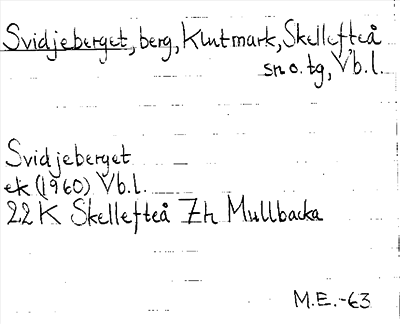 Svidjeberget, berg, Klutmark, Skellefteå
sn o. tg, Vb.l.
Svidjeberget
ek (1960) Vb.l.
22 K Skellefteå 7h Mullbacka
M.E.-63